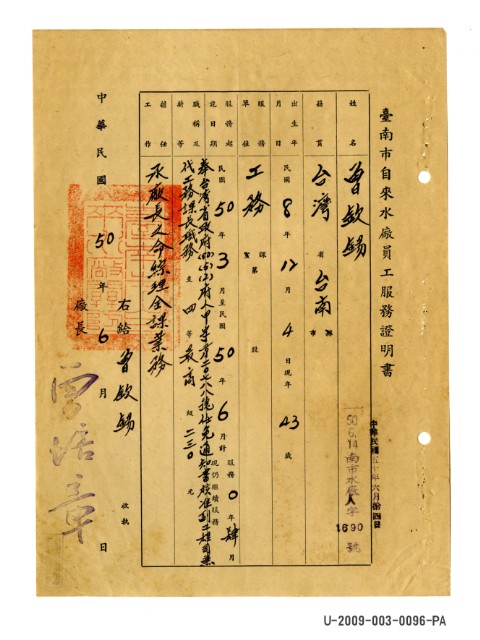 臺南市自來水廠員工服務證明書
中華民國五十年六月拾四日
50.6.14南市水廠人字1690號
姓名 曾欽錫
籍貫 台灣省台南市
出生年月日 民國8年12月4日現年43歲
服務單位 工務課
服務起訖日期 民國50年3月至民國50年6月計服務0年肆月 現仍繼續服務
奉台灣省政府
府人甲字第
號任免通知書核准
代工務課長職務
職稱及薪等 支四等最高級二三〇元
擔任工作 承廠長之命綜理全課業務
右給曾欽錫收執
廠長 曾培章
中華民國50年6月日
U-2009-003-0096-PA